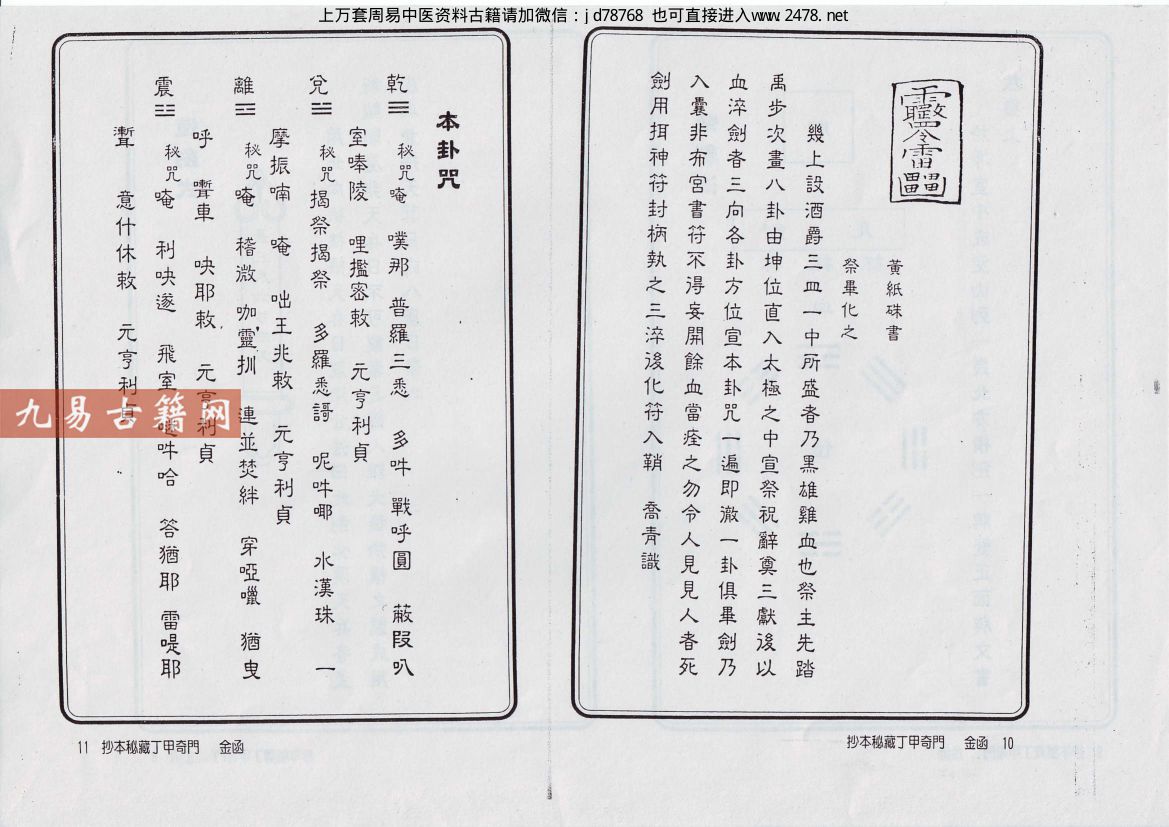 上万套周易中医资料古籍请加微信：jd78768 也可直接进入www.2478.net
黃紙硃書
祭畢化之
幾上設酒爵三皿一中所盛者乃黑雄雞血也祭主先踏
禹步次畫八卦由坤位直入太極之中宣祭祝辭奠三獻後以
血淬劍者三向各卦方位宣本卦咒一遍即澈一卦俱畢劍乃
入囊非布宮書符不得妄開餘血當痊之勿令人見見人者死
劍用挕神符封柄執之三淬後化符入鞘 喬青識
抄本秘藏丁甲奇門 金函 10
本卦咒
乾☰ 秘咒唵 噗那 普羅三悉 多吽 戰呼圓 蔽段叭
室唪陵 哩㩜密敕 元亨利貞
兌☱ 秘咒揭祭揭祭 多羅悉謌 呢吽㖿 水漢珠 一
摩振喃 唵 咄王兆敕 元亨利貞
離☲ 秘咒唵 稽微 咖靈扒 連並焚絆 穿啞囃 猶曳
呼 囀車 咉耶敕 元亨利貞
震☳ 秘咒唵 利咉遂 飛室 吽哈 答猶耶 雷㖷耶
意什休敕 元亨利貞
九易古籍网
11 抄本秘藏丁甲奇門 金函